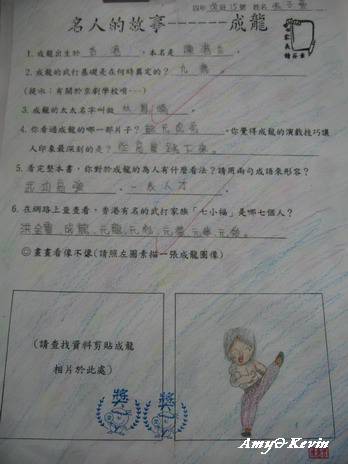 四年 班15號 姓名
名人的故事------成龍
1. 成龍出生於 香港 ,本名是 陳港生 。
2. 成龍的武打基礎是在何時奠定的? 九歲 。
(提示:有關於京劇學校唷…)
3. 成龍的太太名字叫做 林鳳嬌 。
4. 你看過成龍的哪一部片子? ,你覺得成龍的演戲技巧讓
人印象最深刻的是? 下來。
5. 看完整本書,你對於成龍的為人有什麼看法?請用兩句成語來形容?
武功高強 、 一表人才 。
6. 在網路上查查看,香港有名的武打家族「七小福」是哪七個人?
洪金寶 成龍 元龍 元彪 元奎 元華 元
☺畫畫看像不像(請照左圖素描一張成龍圖像)
(請查找資料剪貼成龍
相片於此處)
獎 獎
Amy&Kevin